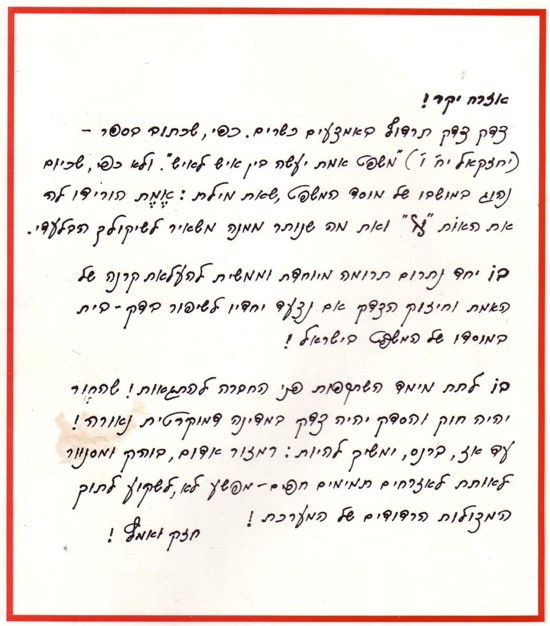 אזרח יקר!
צדק צדק תרדוף באמצעים כשרים. כפי, שכתוב בספר –
(יחזקאל יח' ו') "משפט אמת יעשה בין איש לאיש". ולא כפי, שכיום
נהוג במושבו של מוסד המשפט, שאת מילת: אֱמֶת הורידו לה
את האות "א" ואת מה שנותר ממנה משאיר לשיקולך הבלעדי.
בּוֹ יחד נתרום תרומה מיוחדת וממשית להעלאת קרנה של
האמת וחיזוק הצדק אם נצעד יחדיו לשיפור בדק-בית
במוסדו של המשפט בישראל!
בּוֹ לתת מימד השתקפות פני החברה להתגאות! שהחור
יהיה חוק והסדק יהיה צדק במדינה דמוקרטית נאורה!
עד אז, ברנס, ימשיך להיות: רמזור אדום, בוהק ומסנוור
לאותת לאזרחים תמימים חפים-מפשע לא, לשקוע לתוך
המצולות הרדודים של המערכת!
חזק ואמץ!